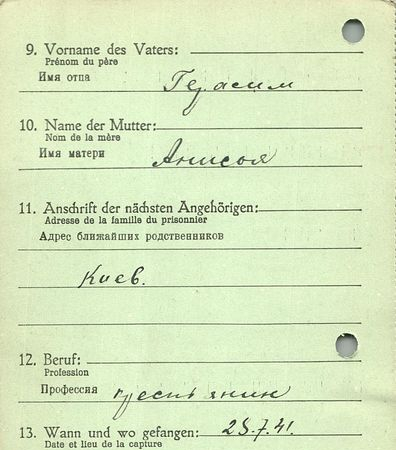 9. Vorname des Vaters:
Prénom du père
Имя отца
Герасим
10. Name der Mutter:
Nom de la mère
Имя матери
Анисья
11. Anschrift der nächsten Angehörigen:
Adresse de la famille du prisonnier
Адрес ближайших родственников
Киев.
12. Beruf:
Profession
Профессия
13. Wann und wo gefangen:
Date et lieu de la capture